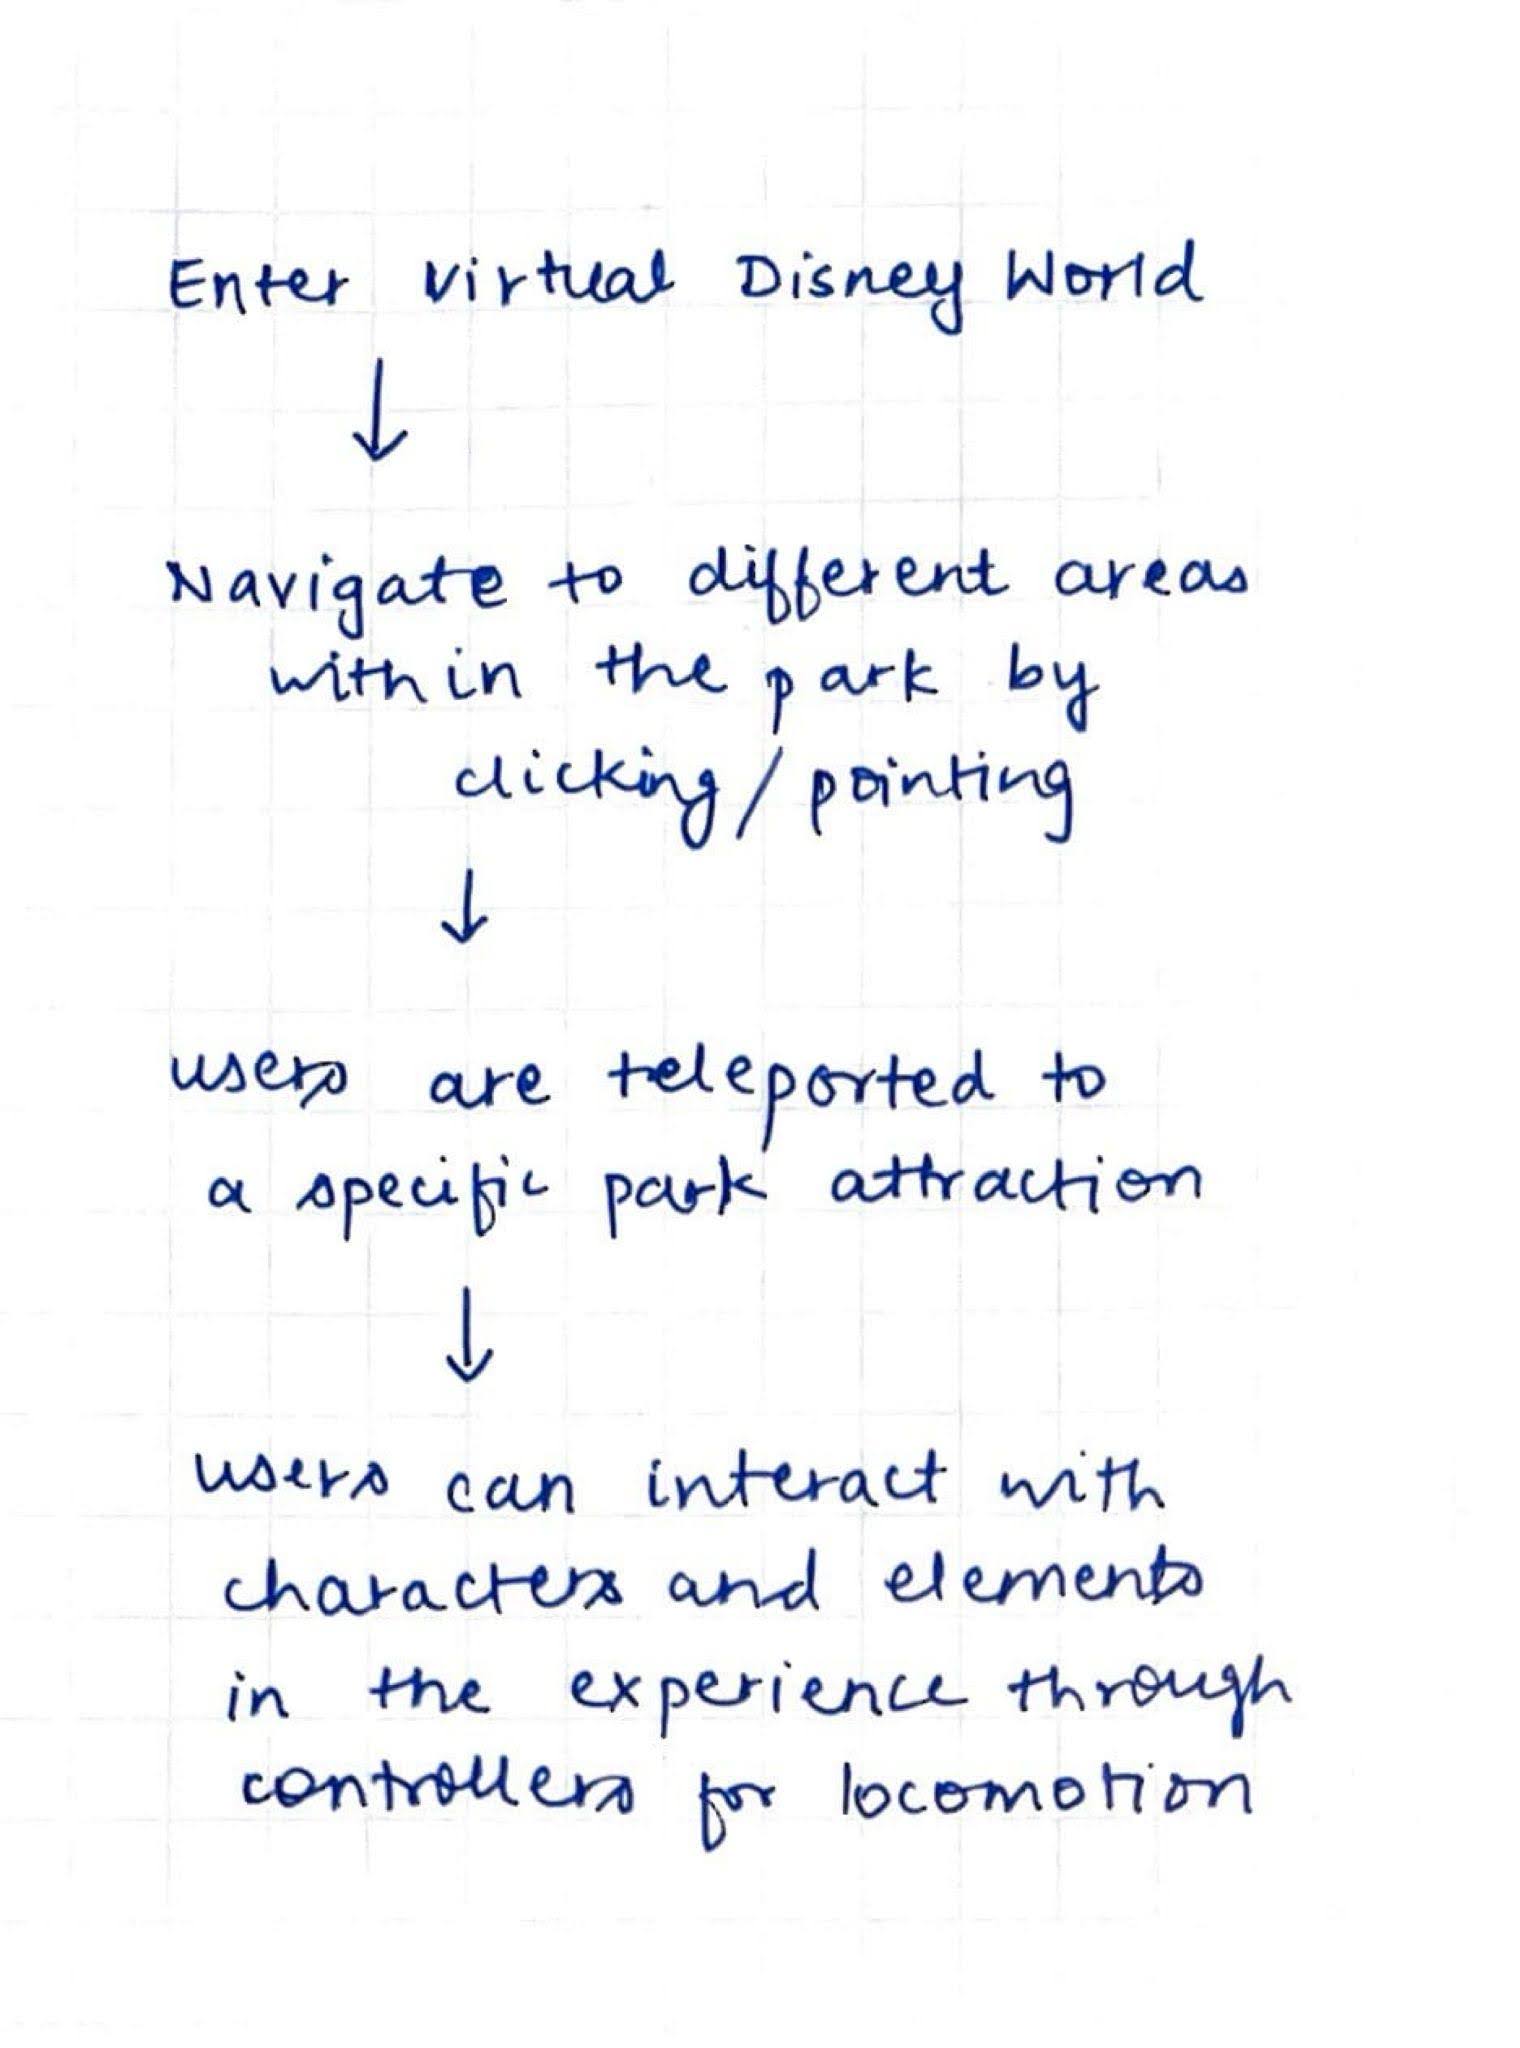 Enter virtual Disney World
↓
Navigate to different areas
within the park by
clicking/pointing
↓
users are teleported to
a specific park attraction
↓
users can interact with
characters and elements
in the experience through
controllers for locomotion